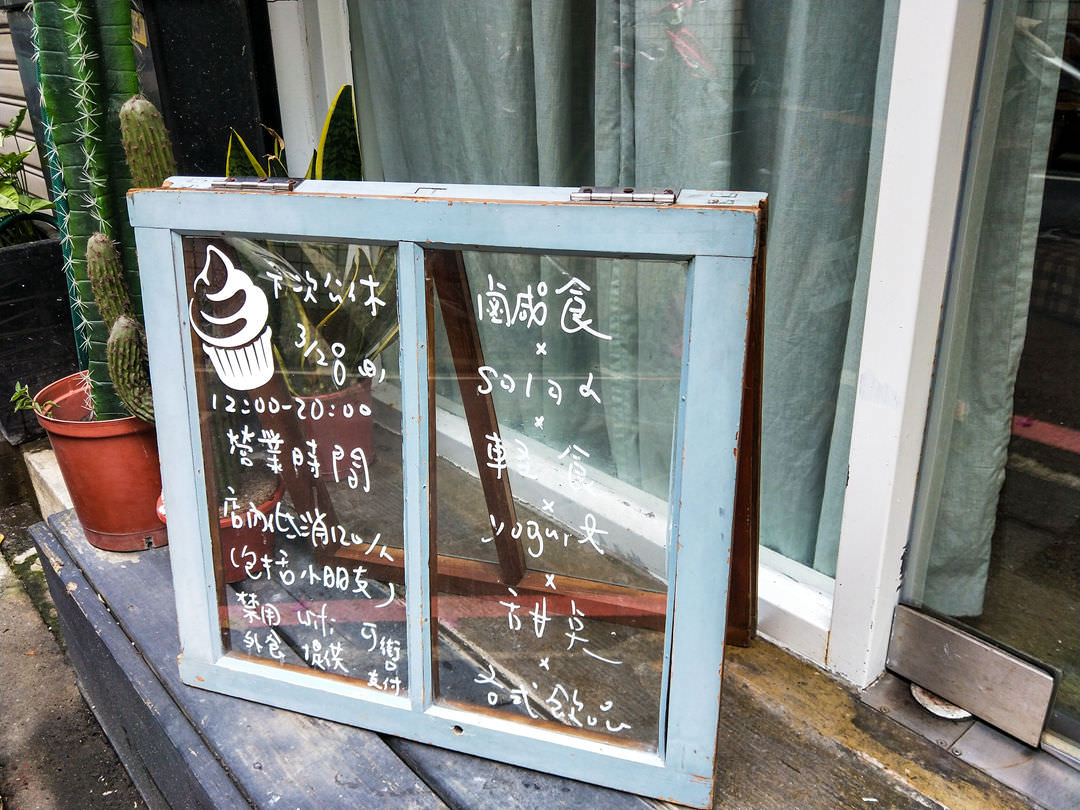 下次公休
3/28
12:00-20:00
營業時間
店內低消120/人
(包括小朋友)
禁用外食
wifi提供
可街支付
鹵咸食
×
Salad
×
輕食
×
yogurt
×
甜案
×
各式飲品